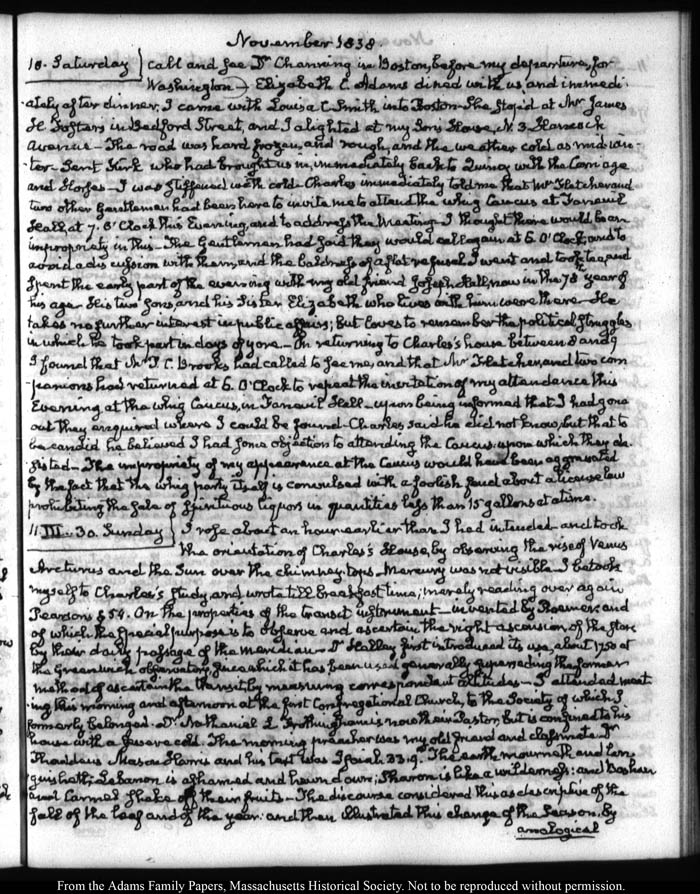 November 1838.
10. Saturday } call and see Dr Channing in Boston, before my departure, for
Washington — Elizabeth C. Adams dined with us and immedi-
-ately after dinner, I came with Louisa C. Smith into Boston. She stop'd at Mr James
H. Foster's in Bedford Street, and I alighted at my Sons House, N. 3. Hancock
Avenue — The road was hard frozen, and rough, and the weather cold as midwin-
-ter — Sent Kirk who had brought us in, immediately back to Quincy with the Carriage
and Horses — I was stiffened with cold — Charles immediately told me that Mr Fletcher and
two other Gentlemen had been here to invite me to attend the Whig Caucus at Faneuil
Hall, at 7. O'Clock this Evening, and to address the Meeting — I thought there would be an
impropriety in this — The Gentlemen had said they would call again at 6 O'Clock, and to
avoid a discussion with them, and the baldness of a flat refusal I went and took tea, and
spent the early part of the evening with my old friend Joseph Hall, now in the 78th year of
his age. His two Sons and his Sister Elizabeth who lives with him were there — He
takes no further interest in public affairs; but loves to remember the political struggles
in which he took part in days of yore — On returning to Charles's house between 8 and 9
I found that Mr P. C. Brooks had called to see me, and that Mr Fletcher, and two com-
-panions had returned at 6. O'Clock to repeat the invitation of my attendance this
Evening at the Whig Caucus, in Faneuil Hall — upon being informed that I had gone
out they enquired where I could be found — Charles said he did not know, but that to
be candid he believed I had some objection to attending the Caucus upon which they de-
sisted — The impropriety of my appearance at the Caucus would have been aggravated
by the fact that the whig party itself is convulsed with a foolish feud about a license law
prohibiting the sale of spirituous liquors in quantities less than 15 gallons at a time.
11. III. 30. Sunday } I rose about an hour earlier than I had intended and took
the orientation of Charles's House, by observing the rise of Venus
Arcturus and the Sun over the chimney tops — Mercury was not visible — I betook
myself to Charles's Study, and wrote till breakfast time; merely reading over again
Pearson § 54. On the properties of the transit instrument — invented by Roemer, and
of which the special purpose is to observe and ascertain the right ascension of the stars
by their daily passage of the meridian — Dr Halley first introduced its use, about 1750 at
the Greenwich observatory, since which it has been used generally superseding the former
method of ascertain the transit, by measuring correspondent altitudes — I attended meet-
-ing this morning and afternoon at the first Congregational Church, to the Society of which I
formerly belonged. Dr Nathaniel L. Frothingham is now their Pastor, but is confined to his
house with a severe cold. The morning preacher was my old friend and classmate Dr
Thaddeus Mason Harris and his text was Isaiah 33. 9. The earth mourneth and lan-
guisheth: Lebanon is ashamed and hewn down; Sharon is like a wilderness: and Bashan
and Carmel shake off their fruits — The discourse considered this as descriptive of the
fall of the leaf and of the year: and then illustrated this change of the Season, by
analogical
From the Adams Family Papers, Massachusetts Historical Society. Not to be reproduced without permission.